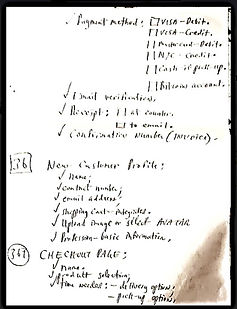 ✓ Payment method: □ VISA - Debit.
□ VISA - Credit.
□ Mastercard - Debit.
□ M/C - Credit.
□ Cash @ pick up.
□ Bitcoin account.
✓ Email verification.
✓ Receipt: □ at counter.
□ to email.
✓ Confirmation Number (Invoice).
36 New Customer Profile:
✓ name;
✓ contact number;
✓ email address;
✓ shipping cart-
✓ Upload image or select AVATAR
✓ Profession - basic information.
CHECKOUT PAGE:
✓ name.
✓ product selection;
✓ time needed: - delivery option,
- pick-up option,